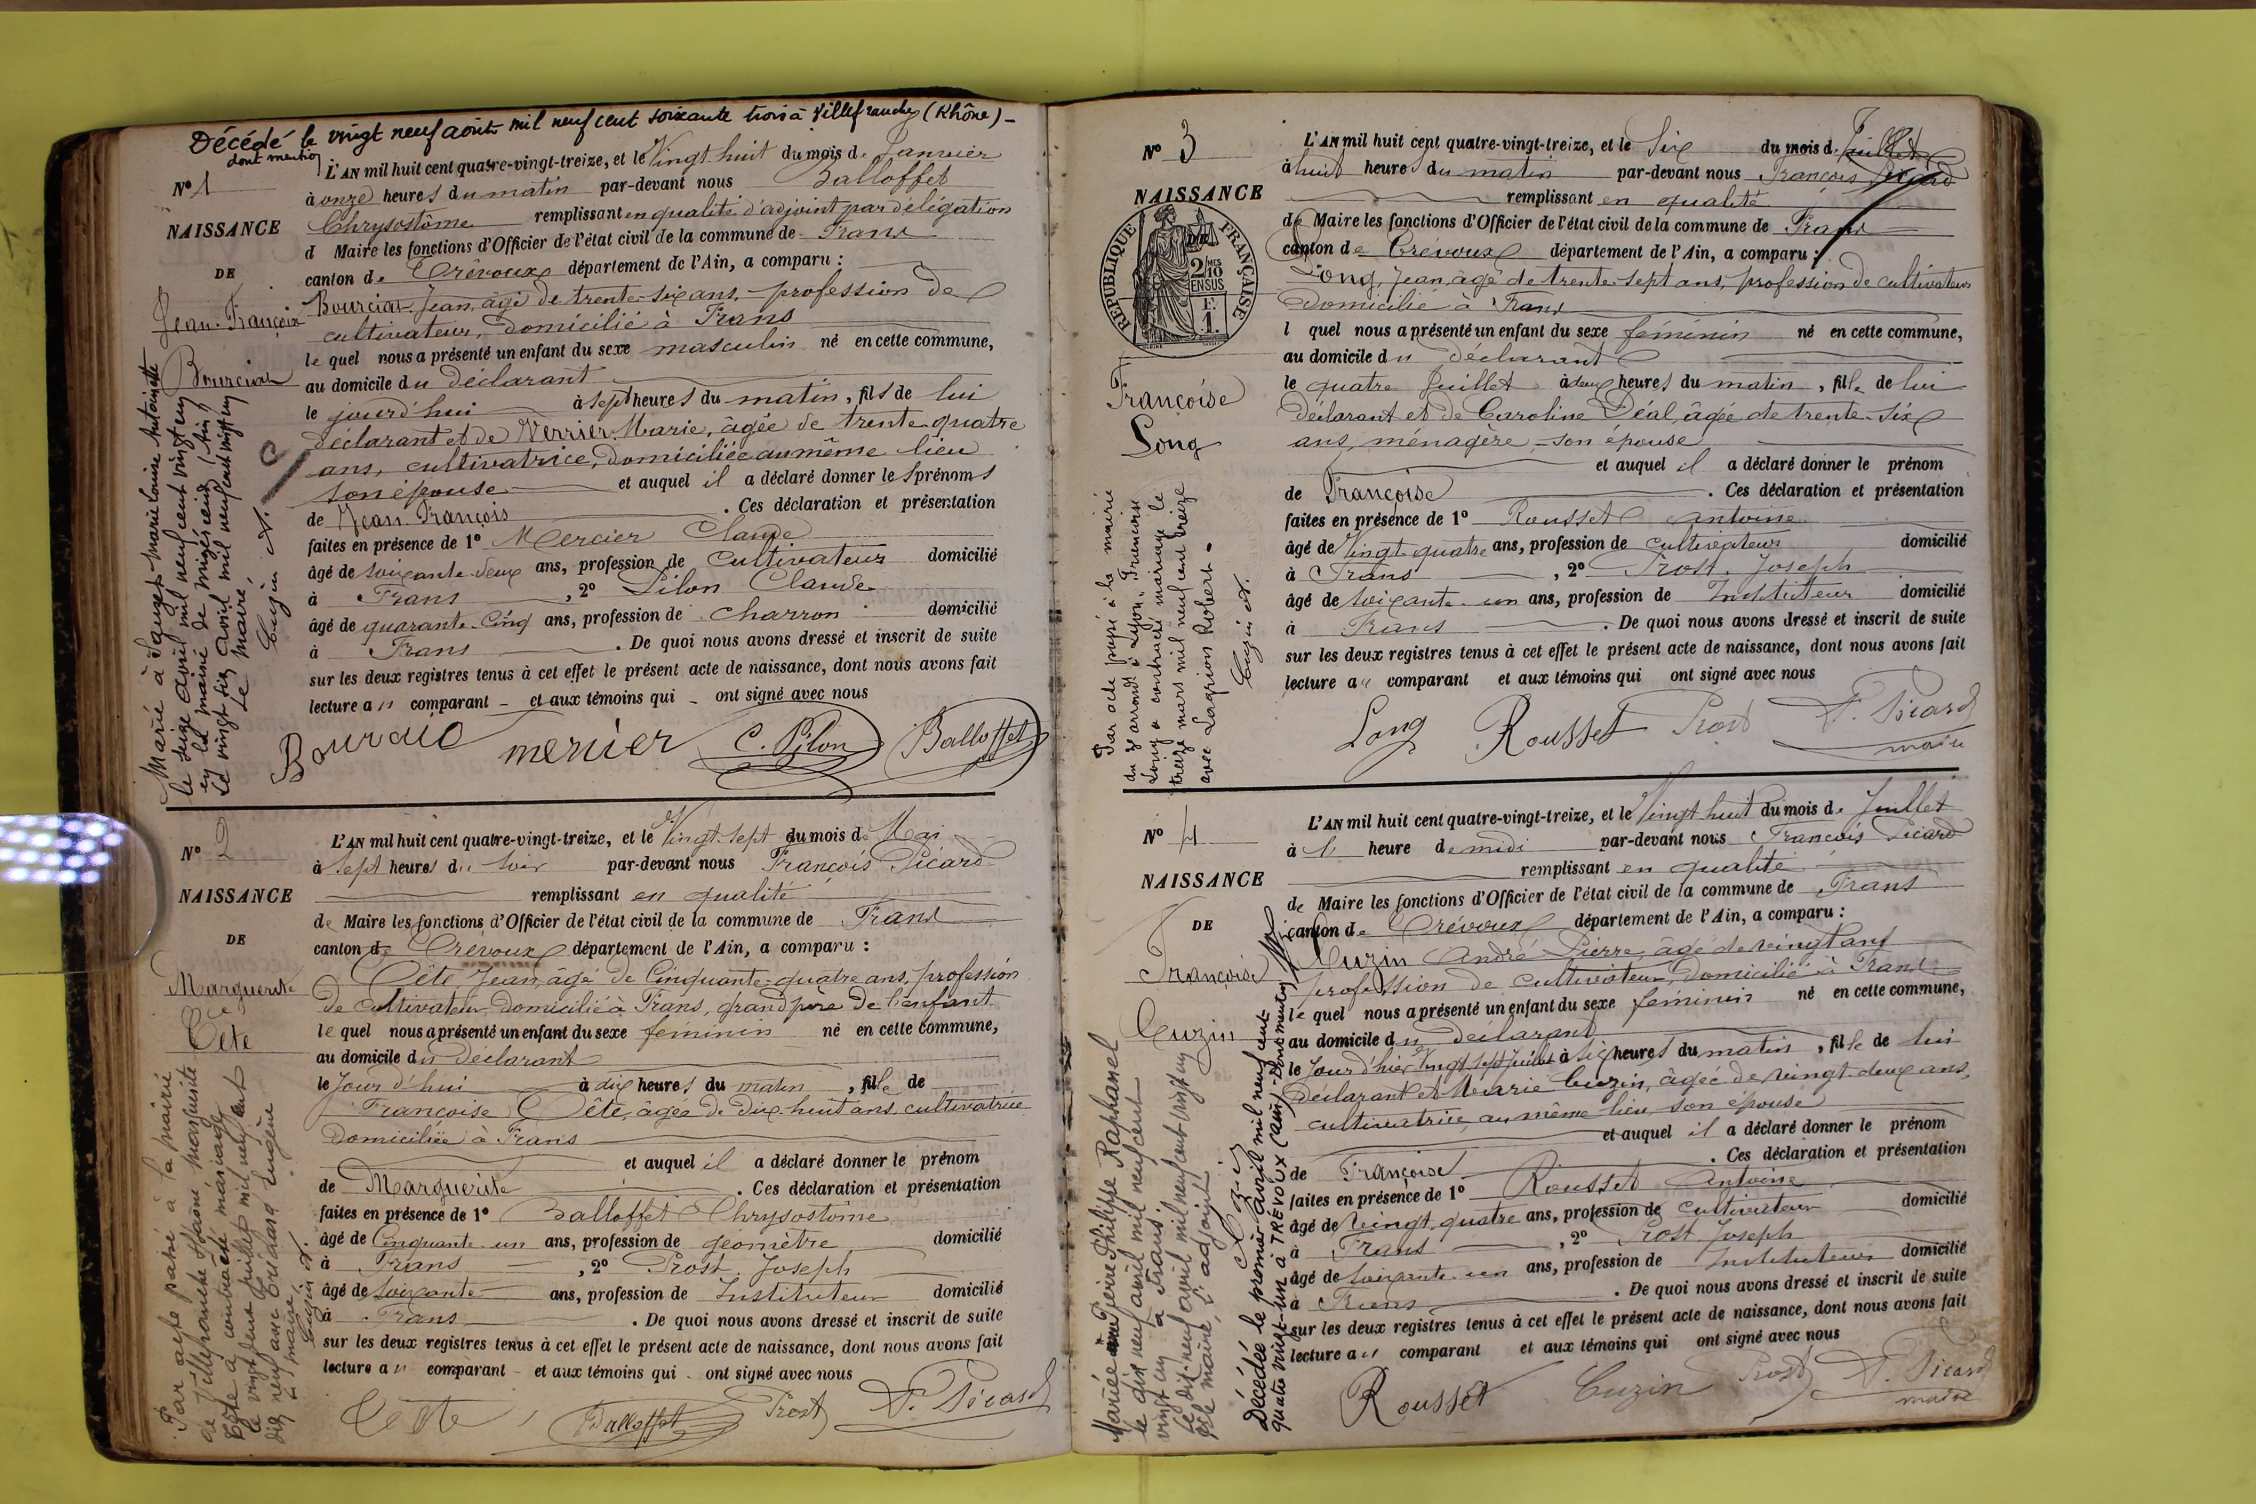 Décédé le vingt neuf août mil neuf cent soixante trois à Villefranche (Rhône) -
dont mention
N° 1
NAISSANCE
DE
Jean-François
Bourciat
L'AN mil huit cent quatre-vingt-treize, et le Vingt huit du mois de Janvier
à onze heures du matin par-devant nous Balloffet
Chrysostôme remplissant en qualité d'adjoint par délégation
d Maire les fonctions d'Officier de l'état civil de la commune de Frans
canton de Trévoux département de l'Ain, a comparu :
Bourciat Jean, âgé de trente-six ans, profession de
cultivateur, domicilié à Frans
le quel nous a présenté un enfant du sexe masculin né en cette commune,
au domicile du déclarant
le jourd'hui à sept heures du matin, fils de lui
déclarant et de Verrier Marie, âgée de trente-quatre
ans, cultivatrice, domiciliée au même lieu
son épouse et auquel il a déclaré donner le s prénom s
de Jean François . Ces déclaration et présentation
faites en présence de 1° Mercier Claude
âgé de soixante-deux ans, profession de cultivateur domicilié
à Frans , 2° Pilon Claude
âgé de quarante-cinq ans, profession de charron domicilié
à Frans . De quoi nous avons dressé et inscrit de suite
sur les deux registres tenus à cet effet le présent acte de naissance, dont nous avons fait
lecture au comparant et aux témoins qui ont signé avec nous
mercier C. Pilon Balloffet
Marié à Marie Louise Antoinette
le seize avril mil neuf cent vingt un
en la mairie de Misérieux (Ain)
Le vingt-six avril mil neuf cent vingt un
Le maire,
Cuzin A.
N° 2
NAISSANCE
DE
Marguerite
Cête
L'AN mil huit cent quatre-vingt-treize, et le Vingt-sept du mois de Mai
à sept heures du soir par-devant nous François Picard
remplissant en qualité
de Maire les fonctions d'Officier de l'état civil de la commune de Frans
canton de Trévoux département de l'Ain, a comparu :
Cête, Jean, âgé de Cinquante-quatre ans, profession
de cultivateur, domicilié à Frans, grand père de l'enfant
le quel nous a présenté un enfant du sexe féminin né en cette commune,
au domicile du déclarant
le Jour d'hui à dix heures du matin, fille de
Françoise Cête, âgée de dix-huit ans, cultivatrice
domiciliée à Frans
et auquel il a déclaré donner le prénom
de Marguerite . Ces déclaration et présentation
faites en présence de 1° Balloffet Chrysostôme
âgé de Cinquante-un ans, profession de géomètre domicilié
à Frans , 2° Prost Joseph
âgé de soixante ans, profession de Instituteur domicilié
à Frans . De quoi nous avons dressé et inscrit de suite
sur les deux registres tenus à cet effet le présent acte de naissance, dont nous avons fait
lecture au comparant et aux témoins qui ont signé avec nous
Cête Balloffet Prost F. Picard
Par acte passé à la mairie
de Villefranche Marguerite
Cête a contracté mariage
le vingt deux juillet mil neuf cent
dix neuf avec Eugène
Le maire,
Cuzin A.
N° 3
NAISSANCE
DE
RÉPUBLIQUE FRANÇAISE
2/10 MES
EN SUS
F.
1.
Françoise
Long
L'AN mil huit cent quatre-vingt-treize, et le Six du mois de Juillet
à huit heures du matin par-devant nous François Picard
remplissant en qualité
de Maire les fonctions d'Officier de l'état civil de la commune de Frans
canton de Trévoux département de l'Ain, a comparu :
Long, Jean, âgé de trente-sept ans, profession de cultivateur
domicilié à Frans
l quel nous a présenté un enfant du sexe féminin né en cette commune,
au domicile du déclarant
le quatre Juillet à deux heures du matin, fille de lui
déclarant et de Caroline Déal, âgée de trente-six
ans, ménagère, son épouse
et auquel il a déclaré donner le prénom
de Françoise . Ces déclaration et présentation
faites en présence de 1° Rousset Antoine
âgé de Vingt quatre ans, profession de cultivateur domicilié
à Frans , 2° Prost, Joseph
âgé de soixante-un ans, profession de Instituteur domicilié
à Frans . De quoi nous avons dressé et inscrit de suite
sur les deux registres tenus à cet effet le présent acte de naissance, dont nous avons fait
lecture au comparant et aux témoins qui ont signé avec nous
Long Rousset Prost F. Picard
maire
Par acte passé à la mairie
du 3e arrondt à Lyon, Françoise
Long a contracté mariage le
treize mars mil neuf cent treize
avec Robert.
Cuzin A.
N° 4
NAISSANCE
DE
Françoise
Cuzin
L'AN mil huit cent quatre-vingt-treize, et le Vingt huit du mois de Juillet
à heure de midi par-devant nous François Picard
remplissant en qualité
de Maire les fonctions d'Officier de l'état civil de la commune de Frans
canton de Trévoux département de l'Ain, a comparu :
Cuzin André Pierre, âgé de vingt ans
profession de cultivateur, domicilié à Frans
le quel nous a présenté un enfant du sexe féminin né en cette commune,
au domicile du déclarant
le Jour d'hier Vingt sept Juillet à six heures du matin, fille de lui
déclarant et Marie Cuzin, âgée de vingt-deux ans,
cultivatrice, au même lieu, son épouse
et auquel il a déclaré donner le prénom
de Françoise . Ces déclaration et présentation
faites en présence de 1° Rousset Antoine
âgé de vingt-quatre ans, profession de cultivateur domicilié
à Frans , 2° Prost, Joseph
âgé de soixante-un ans, profession de Instituteur domicilié
à Frans . De quoi nous avons dressé et inscrit de suite
sur les deux registres tenus à cet effet le présent acte de naissance, dont nous avons fait
lecture au comparant et aux témoins qui ont signé avec nous
Rousset Cuzin Prost F. Picard
maire
Mariée Pierre Philippe Raphanel
le dix neuf avril mil neuf cent
vingt un à Frans.
Le dix-neuf avril mil neuf cent vingt un
P. le maire, L'adjoint
Décédée le premier avril mil neuf cent
quatre vingt-un à TRÉVOUX (Ain). Dont mention